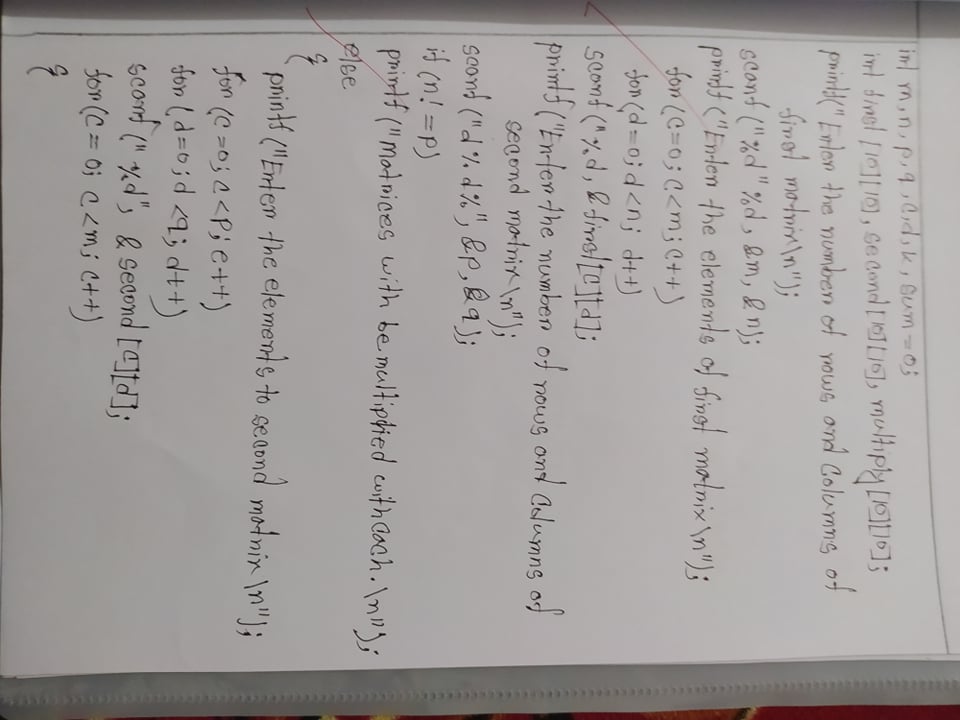 int m, n, p, q, c, d, k, sum = 0;
int first [10] [10], second [10] [10], multiply [10] [10];
printf("Enter the number of rows and Columns of
first matrix\n");
scanf ("%d" %d, &m, &n);
printf ("Enter the elements of first matrix\n");
for (c=0; c<m; c++)
for (d=0; d<n; d++)
scanf ("%d, & first [c][d];
printf ("Enter the number of rows and columns of
second matrix \n");
scanf ("d % d%", &p, &q);
if (n! = p)
printf ("Matrices with be multiplied with each. \n");
else
{
printf ("Enter the elements to second matrix \n");
for (c=0; c<p; c++)
for (d=0; d<q; d++)
scanf ("%d", & second [c][d];
for (c=0; c<m; c++)
{